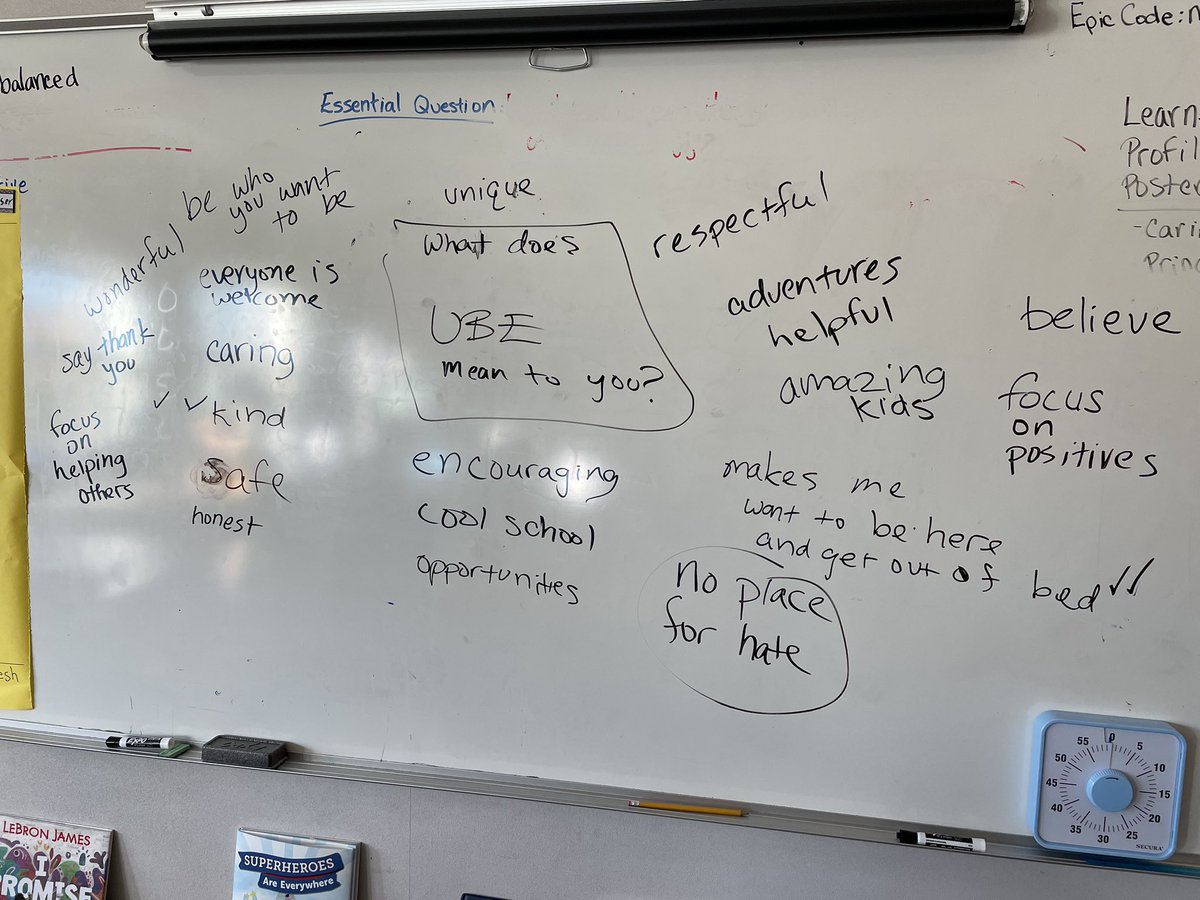 balanced
Essential Question
Epic Code:
Learn
Profil
Poster
-Cari
Prin
be who
you want
to be
unique
wonderful
everyone is
welcome
say thank
you
caring
✓ ✓ kind
focus
on
helping
others
safe
honest
What does
UBE
mean to you?
encouraging
cool school
opportunities
respectful
adventures
helpful
amazing
kids
believe
focus
on
positives
makes me
want to be here
and get out of bed ✓✓
no place
for hate
esh
EXPO
LEBRON JAMES
I
PROMISE
SUPERHEROES
Are Everywhere
0
5
10
15
20
25
30
35
40
45
50
55
SECURA